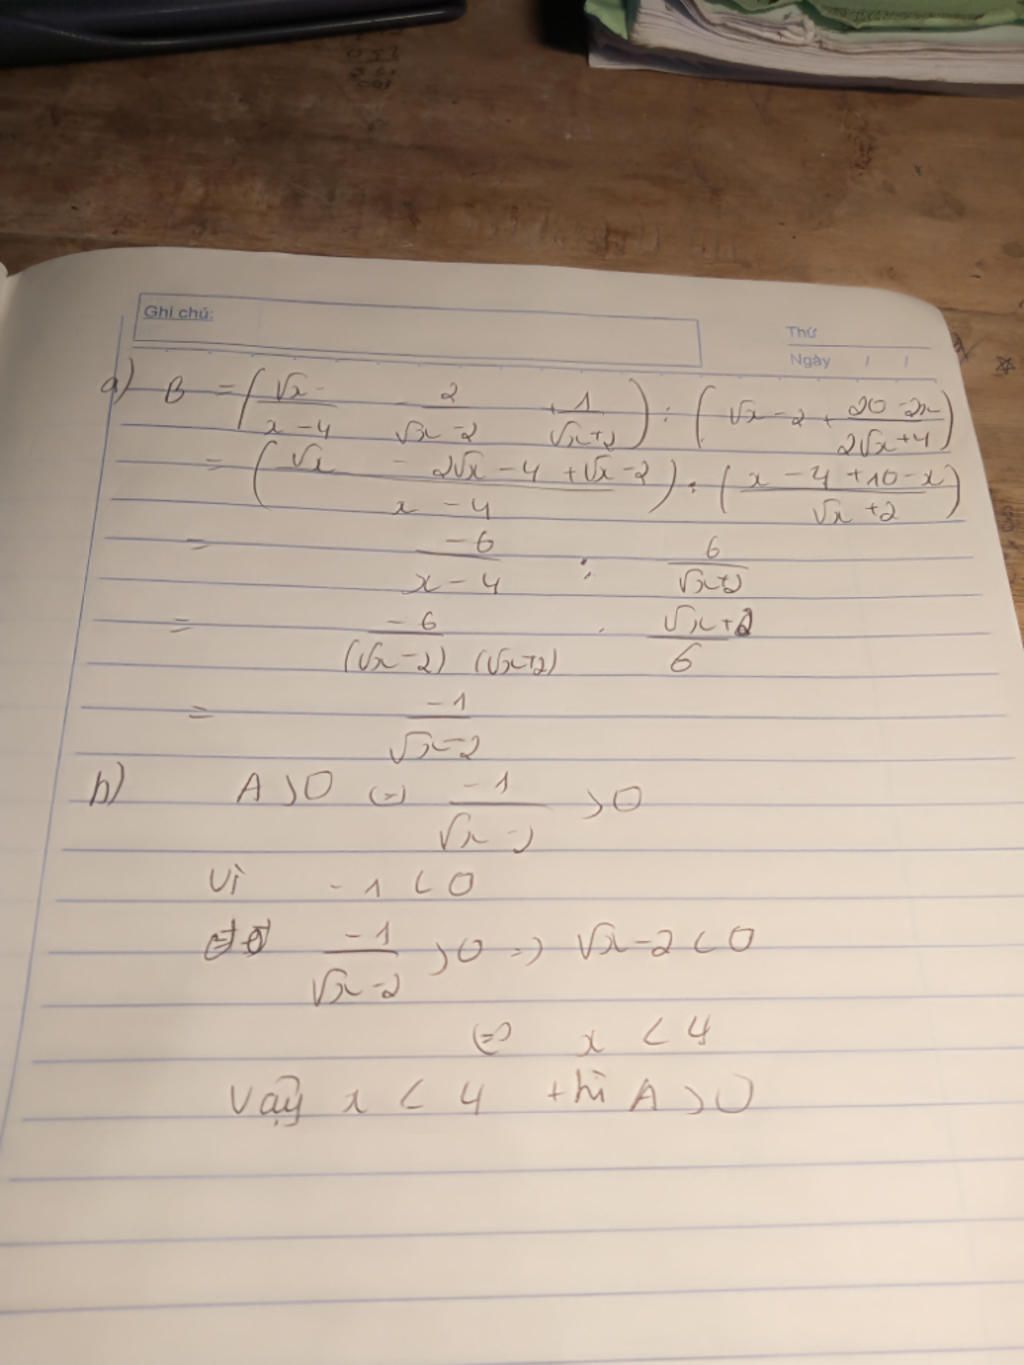 Ghi chú:
Thứ
Ngày / /
a) B = (√x/(x-4) - 2/(√x-2) + 1/(√x+2)) : (√x-2 + (20-2x)/(2√x+4))
= ((√x - 2√x - 4 + √x - 2)/(x-4)) : ((x-4+10-x)/(√x+2))
= -6/(x-4) : 6/(√x+2)
= -6/((√x-2) (√x+2)) . (√x+2)/6
= -1/(√x-2)
b) A > 0 (=) -1/(√x-2) > 0
Vì -1 < 0
-1/(√x-2) > 0 => √x-2 < 0
(=) x < 4
Vậy x < 4 thì A > 0